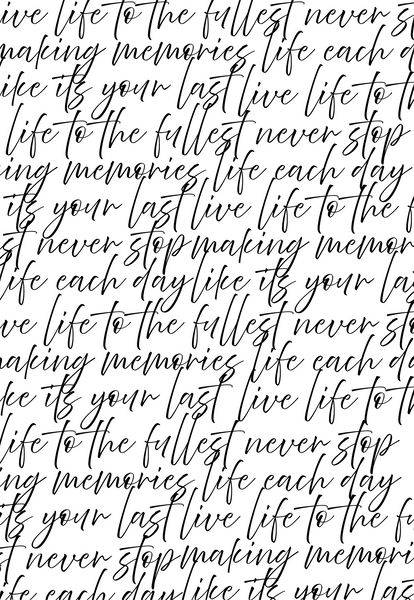 ive life to the fullest never s
making memories life each d
ike its your last live life to t
life to the fullest never stop
ing memories life each day
its your last live life to the f
st never stop making memor
life each day like its your las
ve life to the fullest never sto
aking memories life each da
ke its your last live life to th
life to the fullest never stop
ng memories life each day
its your last live life to the fu
t never stop making memori
ife each day like its your las